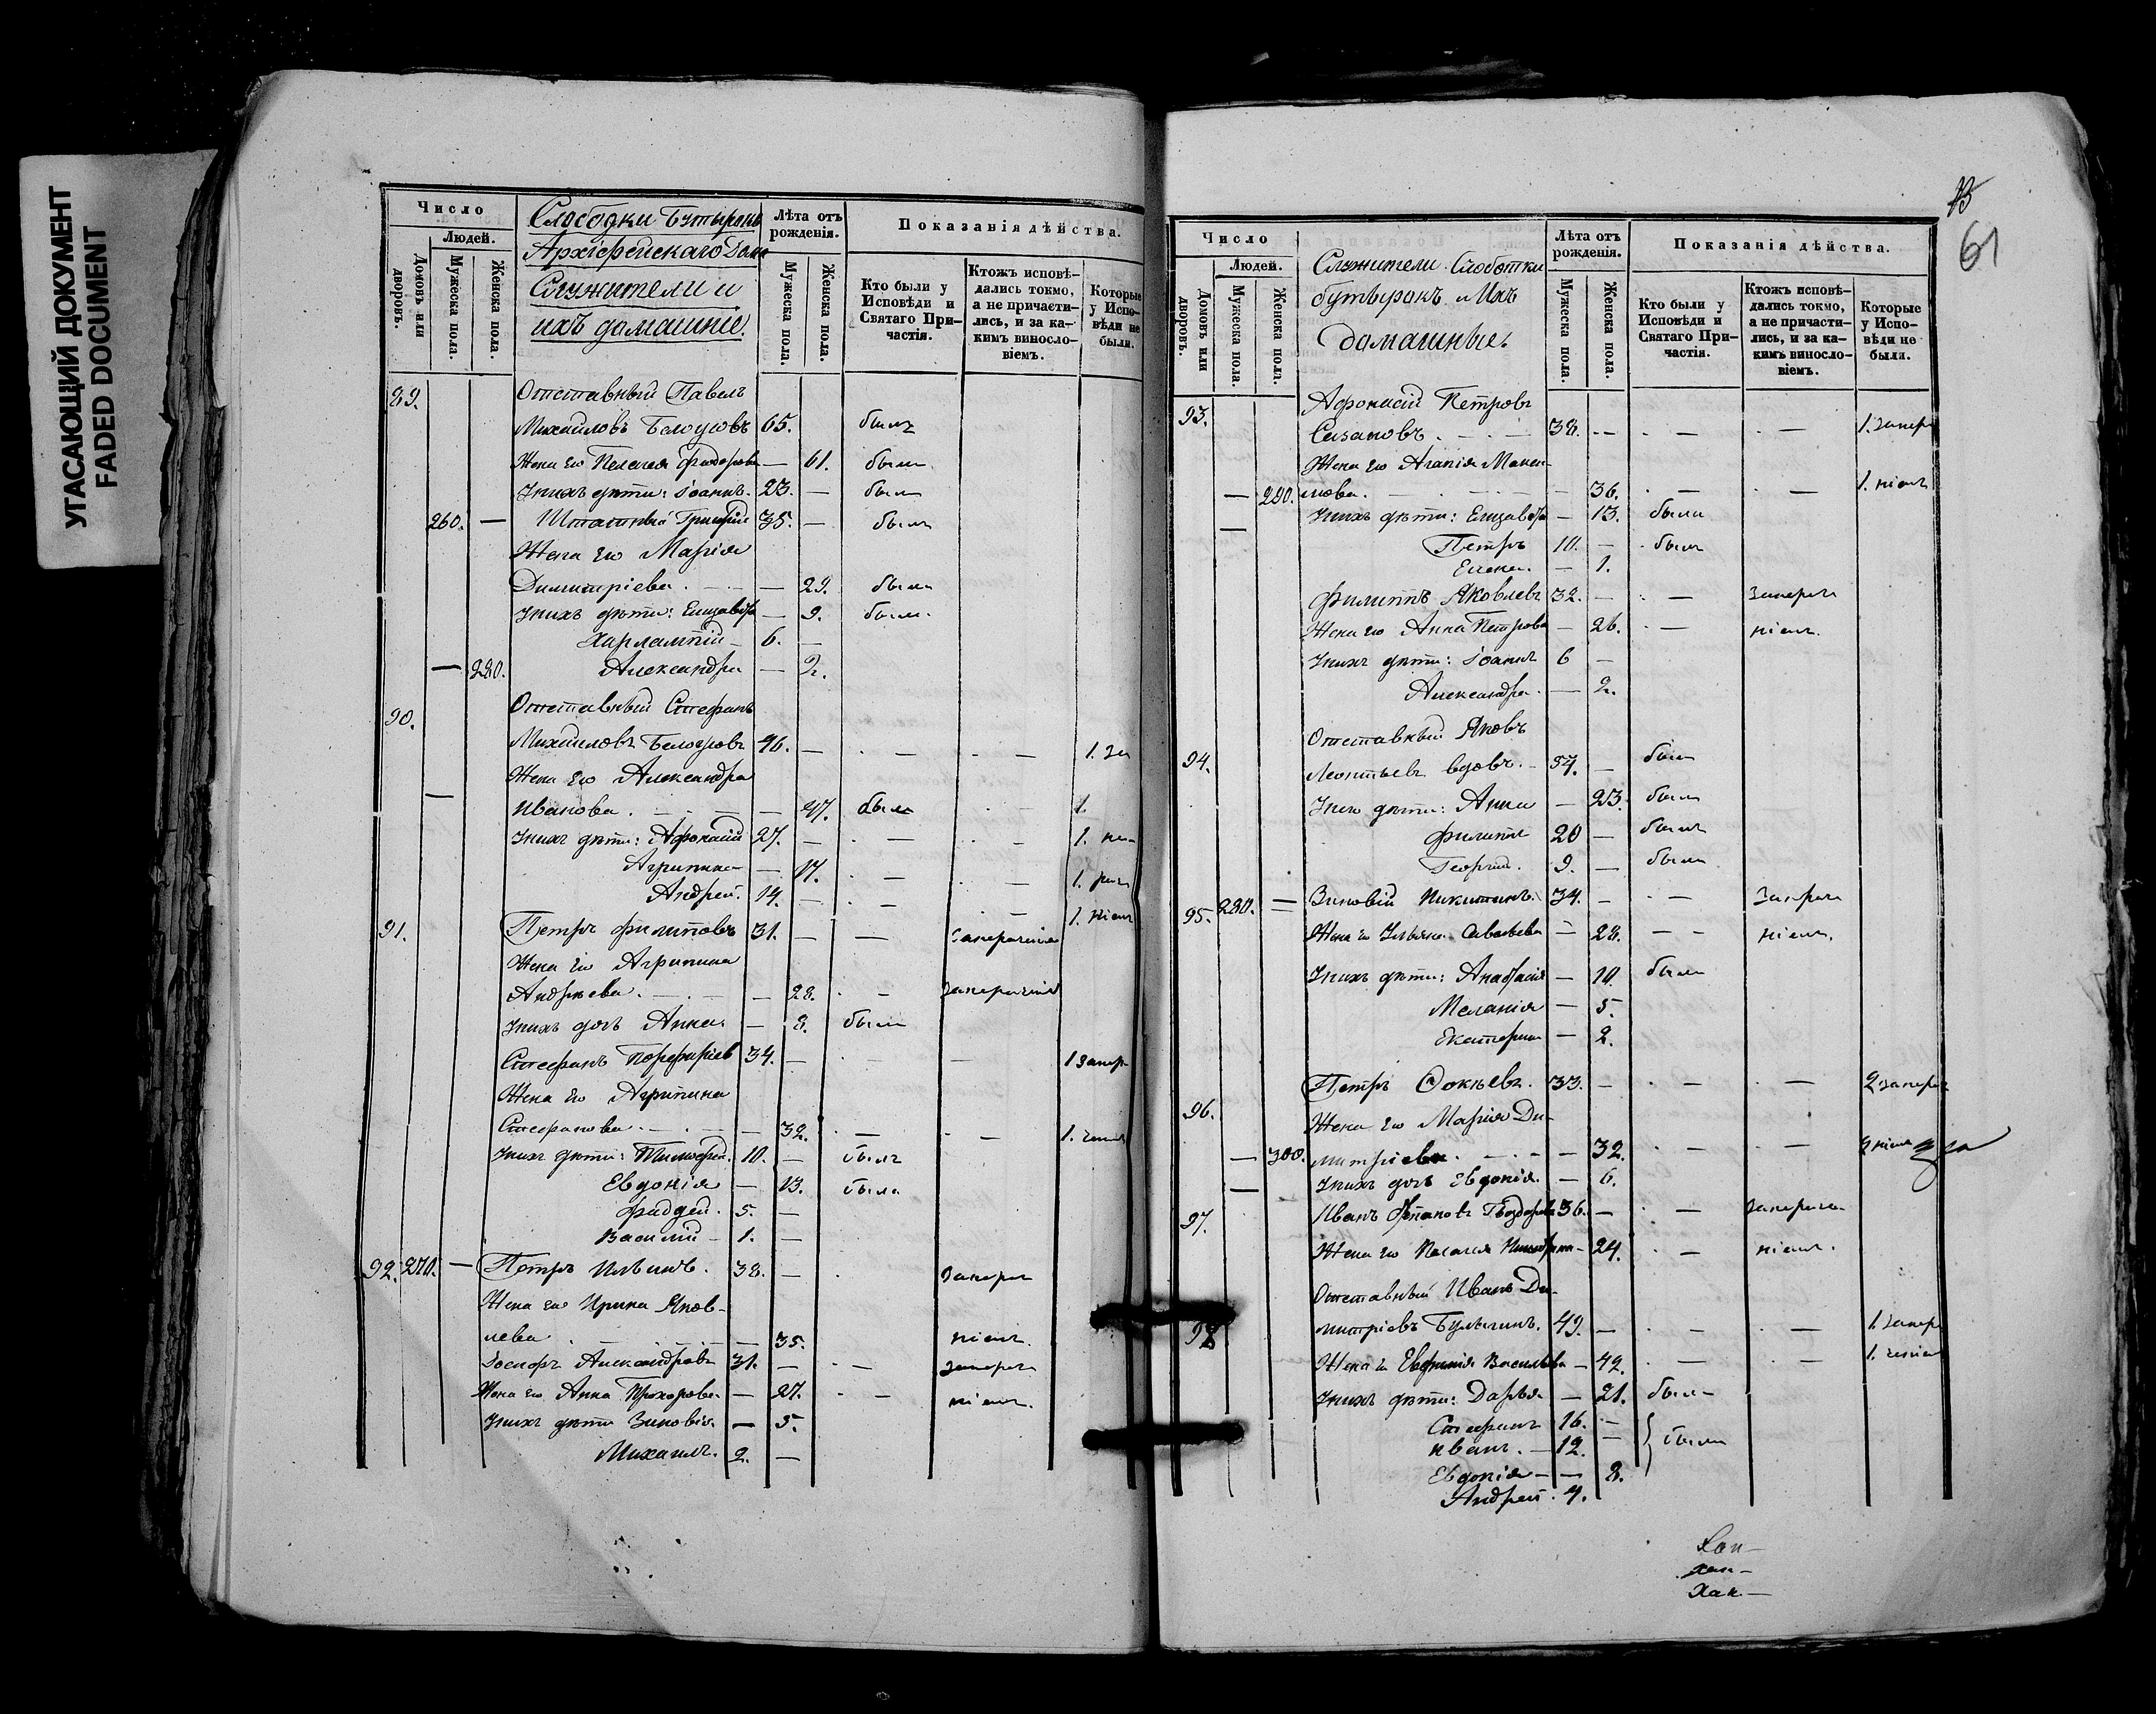 УГАСАЮЩИЙ ДОКУМЕНТ
FADED DOCUMENT
Число
Людей.
Домовъ или дворовъ.
Мужеска пола.
Женска пола.
Слободки Бутырокъ
Архіерейскаго Дома
Служители и
ихъ домашніе.
Лѣта отъ рожденія.
Мужеска пола.
Женска пола.
Показанія дѣйства.
Кто были у Исповѣди и Святаго Причастія.
Ктожъ исповѣдались токмо, а не причастились, и за какимъ винословіемъ.
Которые у Исповѣди не были.
89. Отставный Павелъ
Михайловъ 65. былъ
Жена его Пелагея Федорова — 61. была
У нихъ дѣти: Іоаннъ. 23. — былъ
260. — Штатный Григорій 35. — былъ
Жена его Марія
Димитріева. — 29. была
У нихъ дѣти: Елизавета — 9. была
Харлампій — 6. —
— 280. Александра — 2.
90. Отставный Стефанъ
Михайловъ 46. — . — . — 1. за
Жена его Александра
— Иванова. — 47. была . — 1.
У нихъ дѣти: Афонасій 27. — . — . — 1.
Агрипина — 17. . — . — 1.
Андрей. 14. — . — . — 1. ніемъ
91. Петръ Филиповъ 31. — — заперачені
Жена его Агрипина
Андрѣева. — 28. . — заперачені
У нихъ дочь Анна. — 8. была
Стефанъ Порфиріев 34. — . — — 1 запер
Жена его Агрипина
Стефанова. — 32. . — . — 1.
У нихъ дѣти: Тимофей. 10. — былъ
Евдокія — 13. была
Фаддей. 5. —
Василій — 1. —
92. 270. — Петръ Ильинъ. 38. — . запера
Жена его Ирина Яков-
лева — 35. ніемъ
Александровъ 31. — . — запера
Жена его Анна Прохорова — 27. . — ніемъ.
У нихъ дѣти Зиновія — 5.
Михаилъ. 2. —
61
Число
Людей.
Домовъ или дворовъ.
Мужеска пола.
Женска пола.
Служители Слоботки
бутырокъ и Ихъ
домашные.
Лѣта отъ рожденія.
Мужеска пола.
Женска пола.
Показанія дѣйства.
Кто были у Исповѣди и Святаго Причастія.
Ктожъ исповѣдались токмо, а не причастились, и за какимъ винословіемъ.
Которые у Исповѣди не были.
93. Афонасій Петровъ
Сазановъ. — 38. -- . — . — 1. запер
Жена его Агапія Макси-
— 290. мова. — 36. . — . — 1. ніемъ
— У нихъ дѣти: Елизавета — 13. была
Петръ 10. — . былъ
Елена. — 1.
Филиппъ Яковлевъ 32. — . — запера
Жена его Анна Петрова — 26. . — ніемъ.
У нихъ дѣти: Іоаннъ 6 —
Александра. — 2.
94. Отставный Яковъ
Леонтьевъ вдовъ. — 57. — былъ
У него дѣти: Анна — 23. была
Филиппъ 20 — былъ
Георгій. 9. — былъ
95. 280. — Зиновій Никитинъ. 34. — . — запера
Жена его Ульяна Савельева — 28. — — ніемъ.
У нихъ дѣти: Анастасія — 10. была
Меланія — 5.
Екатерина — 2.
96. Петръ Фокѣевъ. 33. — . — . — 2 запера
Жена его Марія Ди-
— 300. митріева. — 32. . — . —
— У нихъ дочь Евдокія. — 6.
97. Иванъ 36. — . — запера
Жена его Пелагея — 24. . — ніемъ.
98 Отставный Иванъ Ди-
митріевъ Булыгинъ. 49. — . — . — 1. запер
Жена его Евфимія Васильева — 42. . — . — 1.
У нихъ дѣти: Дарья — 21. была
Стефанъ 16. —
Иванъ. — 12. — были
Евдокія — — 8.
Андрей. 4.